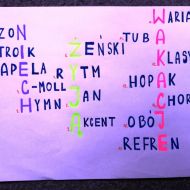 ZON
TROIK
APELA
C-MOLL
HYMN
ŻEŃSKI
RYTM
JAN
AKCENT
WARIA
TUBA
KLASY
HOPAK
CHOR
OBÓJ
REFREN